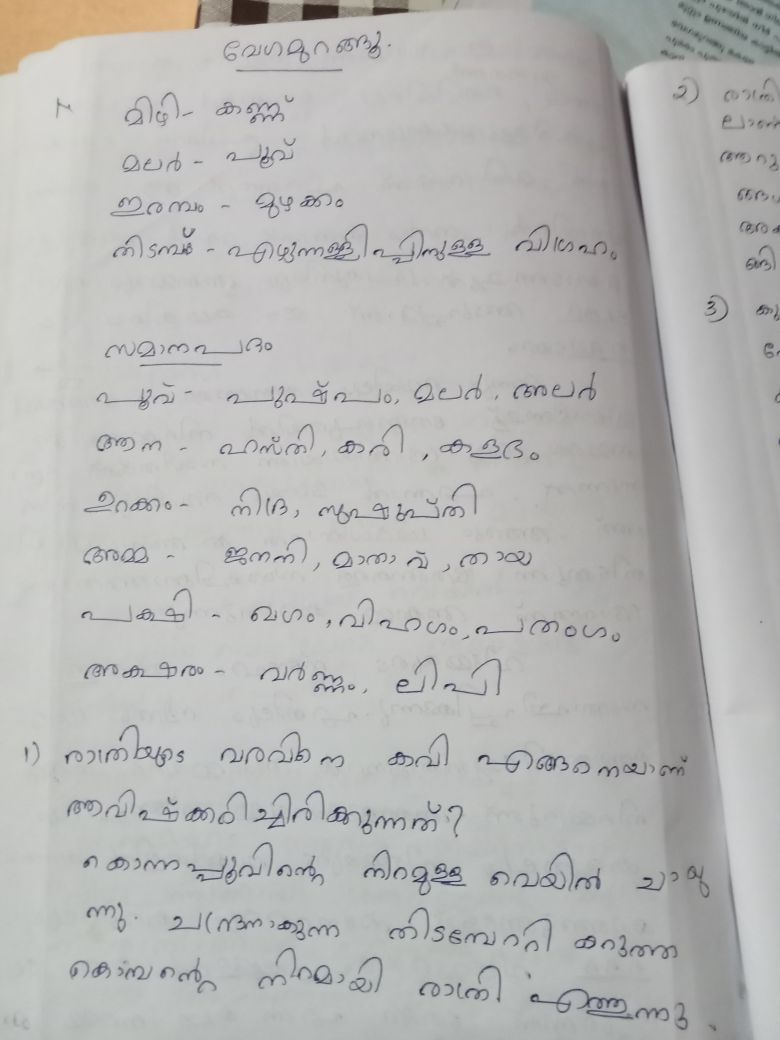 വേഗമുറങ്ങൂ.
മിഴി - കണ്ണ്
മലർ - പൂവ്
ഇരമ്പം - മുഴക്കം
തിടമ്പ് - എഴുന്നള്ളിപ്പിനുള്ള വിഗ്രഹം
സമാനപദം
പൂവ് - പുഷ്പം, മലർ, അലർ
ആന - ഹസ്തി, കരി, കളഭം
ഉറക്കം - നിദ്ര, സുഷുപ്തി
അമ്മ - ജനനി, മാതാവ്, തായ
പക്ഷി - ഖഗം, വിഹഗം, പതംഗം
അക്ഷരം - വർണ്ണം, ലിപി
1) രാത്രിയുടെ വരവിനെ കവി എങ്ങനെയാണ്
ആവിഷ്ക്കരിച്ചിരിക്കുന്നത്?
കൊന്നപ്പൂവിന്റെ നിറമുള്ള വെയിൽ ചായു
ന്നു. ചന്ദ്രനാകുന്ന തിടമ്പേറ്റി കറുത്ത
കൊമ്പന്റെ നിറമായി രാത്രി എത്തുന്നു.
2) രാത്രി
3)